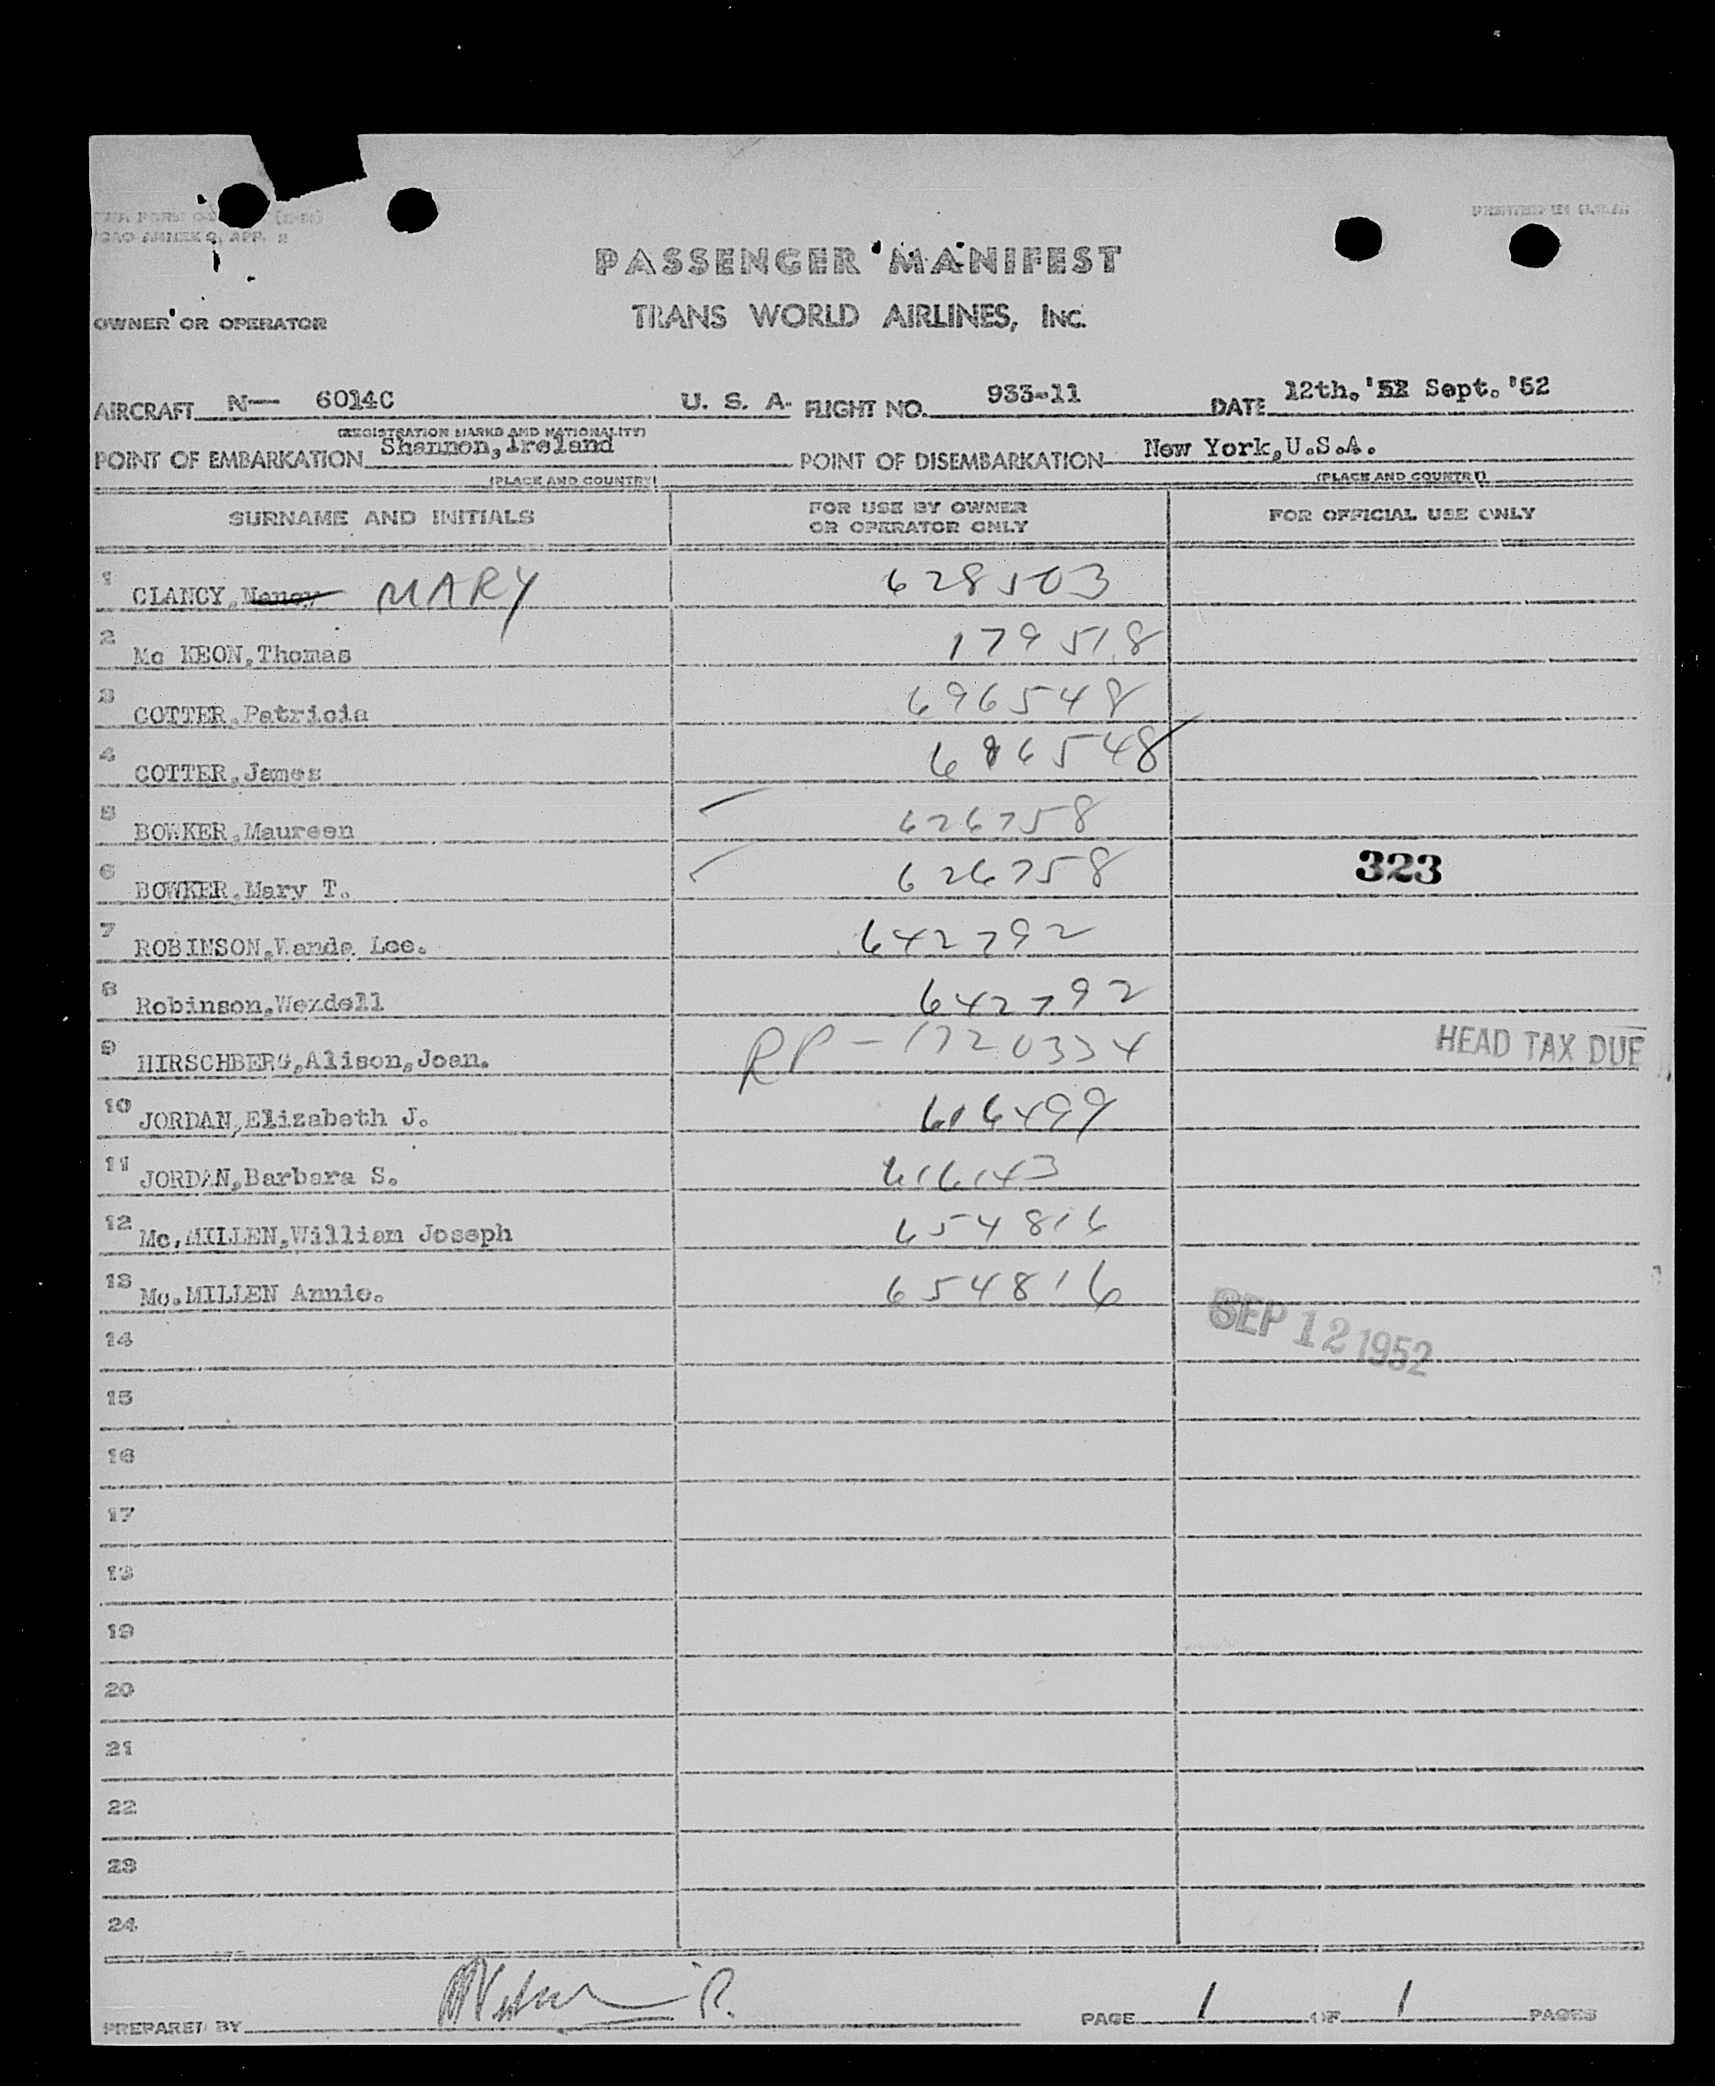 ICAO ANNEX 9, APP. 2
PRINTED IN U.S.A.
PASSENGER MANIFEST
OWNER OR OPERATOR
TRANS WORLD AIRLINES, INC.
AIRCRAFT N— 6014C U. S. A. FLIGHT NO. 933-11 DATE 12th. '52 Sept. '52
(REGISTRATION MARKS AND NATIONALITY)
POINT OF EMBARKATION Shannon,Ireland POINT OF DISEMBARKATION New York,U.S.A.
(PLACE AND COUNTRY) (PLACE AND COUNTRY)
SURNAME AND INITIALS FOR USE BY OWNER OR OPERATOR ONLY FOR OFFICIAL USE ONLY
1 CLANCY,Nancy MARY 628503
2 Mc KEON,Thomas 179518
3 COTTER,Patricia 696548
4 COTTER,James 696548
5 BOWKER,Maureen 626758
6 BOWKER,Mary T. 626758 323
7 ROBINSON,Wanda Lee. 642792
8 Robinson,Wendell 642792
9 HIRSCHBERG,Alison,Joan. RP - 1720334 HEAD TAX DUE
10 JORDAN,Elizabeth J. 616499
11 JORDAN,Barbara S. 616143
12 Mc,MILLEN,William Joseph 654816
13 Mc.MILLEN Annie. 654816
SEP 12 1952
14
15
16
17
18
19
20
21
22
23
24
PREPARED BY PAGE 1 OF 1 PAGES